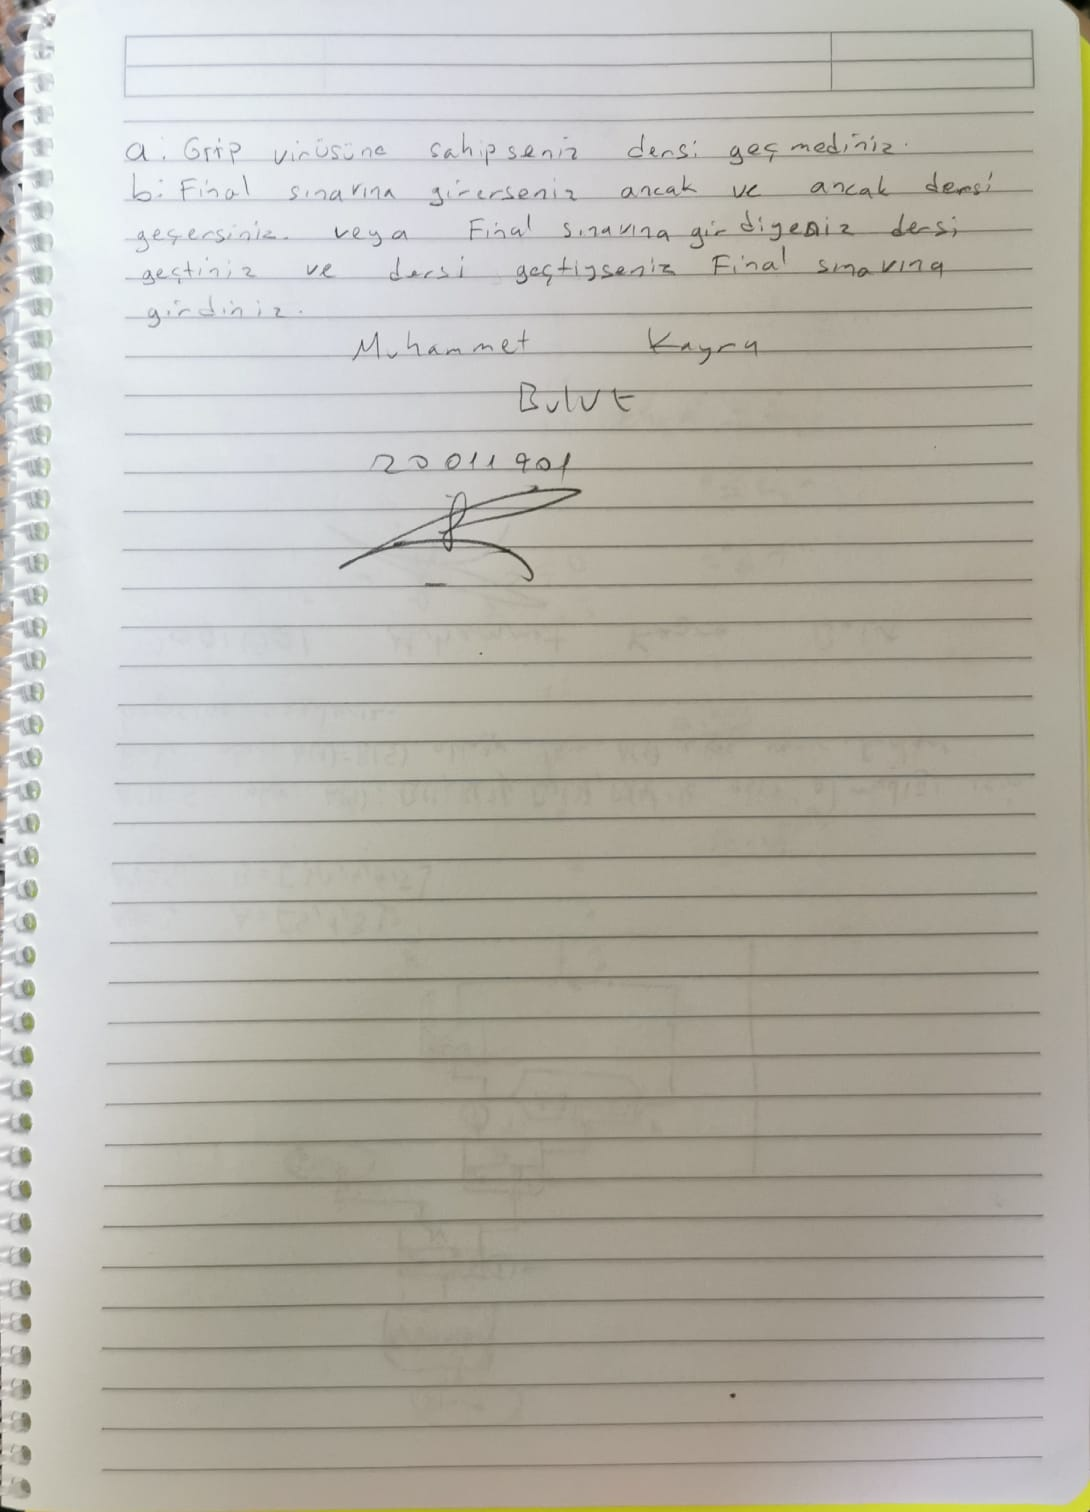 a. Grip virüsüne sahipseniz dersi geçmediniz.
b. Final sınavına girerseniz ancak ve ancak dersi
geçersiniz. veya Final sınavına girdiyseniz dersi
geçtiniz ve dersi geçtiyseniz Final sınavına
girdiniz.
Muhammet Kayra
Bulut
20011901